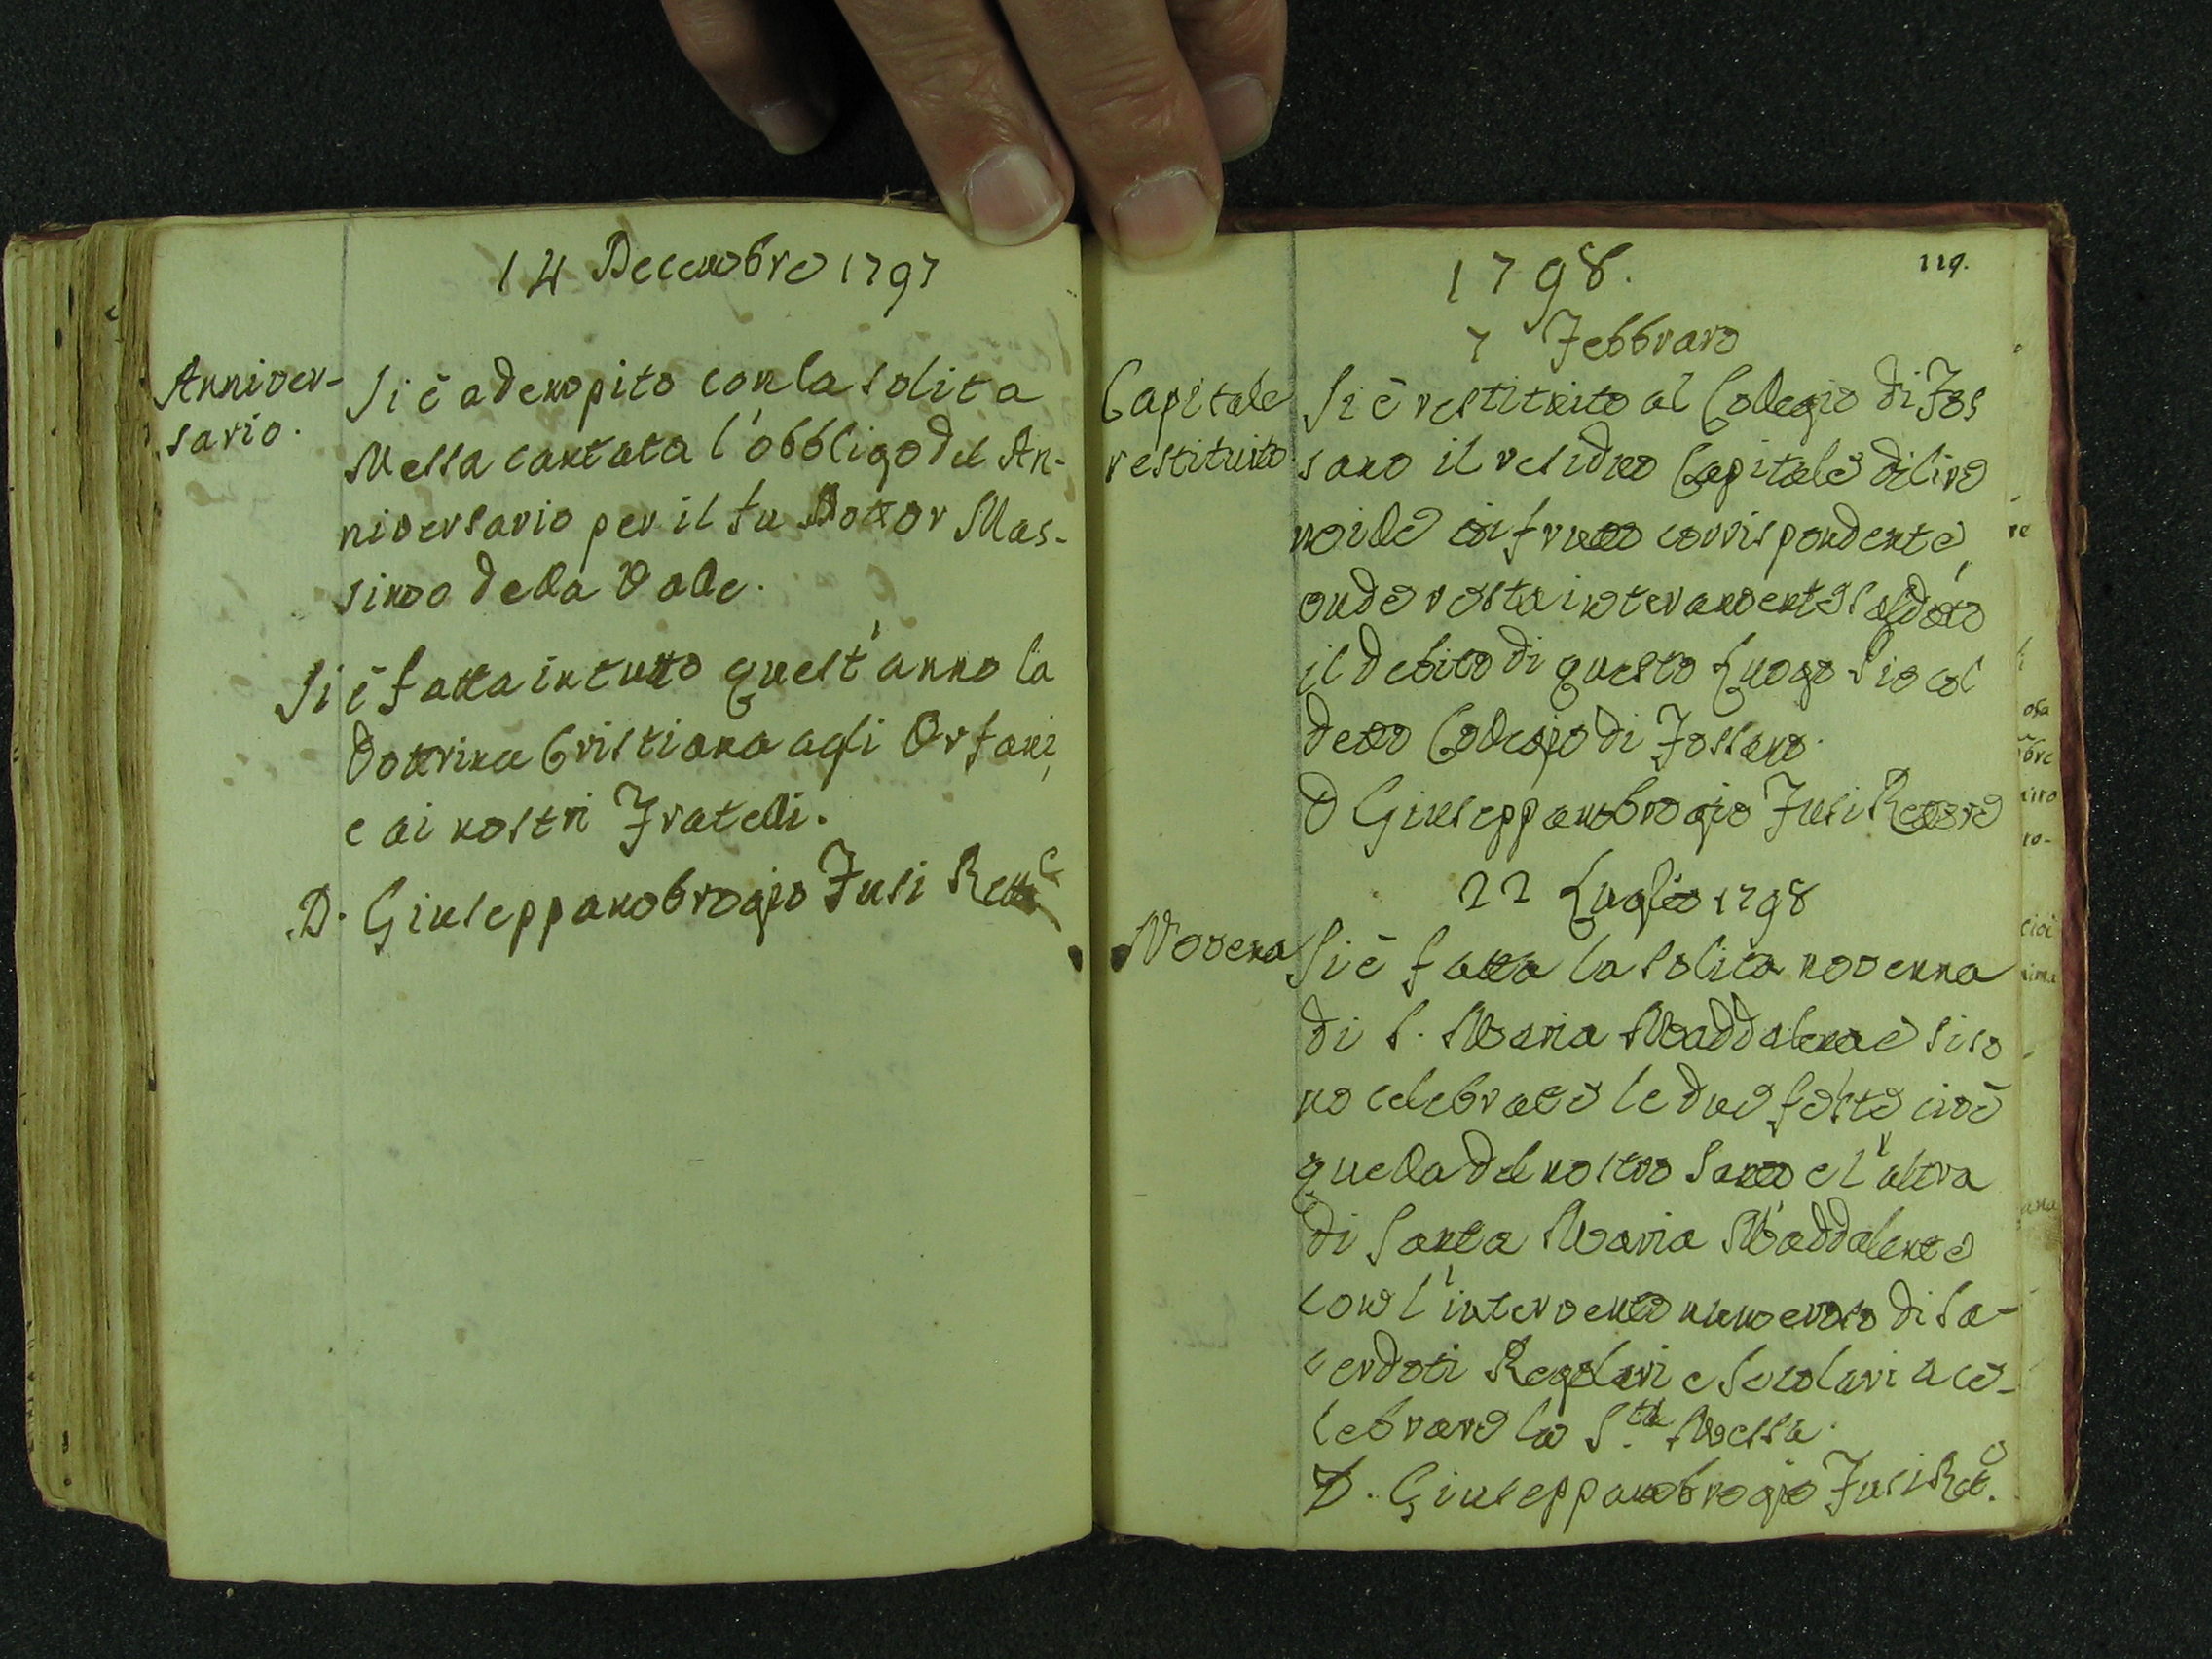 14 Decembre 1797
Anniver-
sario.
Si è adempito con la solita
Messa cantata l'obbligo del An-
niversario per il fu Dottor Mas-
simo della Valle.
Si è fatta in tutto quest'anno la
Dottrina Cristiana agli Orfani,
e ai nostri Fratelli.
D. Giuseppambrogio Fusi Rett.e
119.
1798.
7 Febbraro
Capitale
restituito
Si è restituito al Collegio di Fos
sano il residuo Capitale di lire
mille coi frutto corrispondente,
onde resta interamente saldato
il debito di questo Luogo Pio col
detto Collegio di Fossano.
D Giuseppambrogio Fusi Rettore
22 Luglio 1798
Novena
Si è fatta la solita novenna
di S. Maria Maddalena e si so
no celebrate le due feste, cioè
quella del nostro Santo e l'altra
di Santa Maria Maddalena
con l'intervento numeroso di Sa-
cerdoti Regolari e Secolari a ce-
lebrare la S.ta Messa.
D. Giuseppambrogio Fusi Ret.e